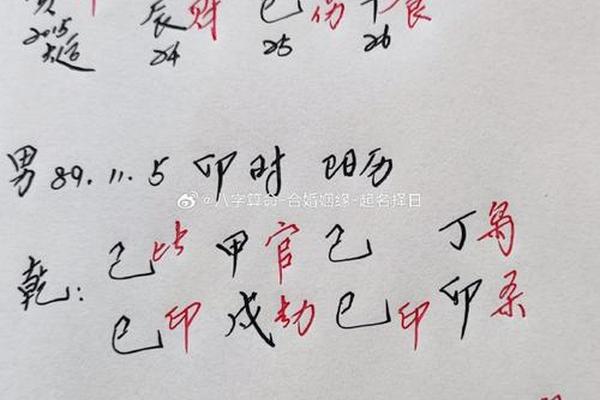 辰财 巳伤 食
2015 24 25 26
大运
男 89.11.5 卯时 阳历
@八字算命-合婚姻缘-起名择日
乾: 己比 甲官 己 丁枭
巳印 戌劫 巳印 卯杀